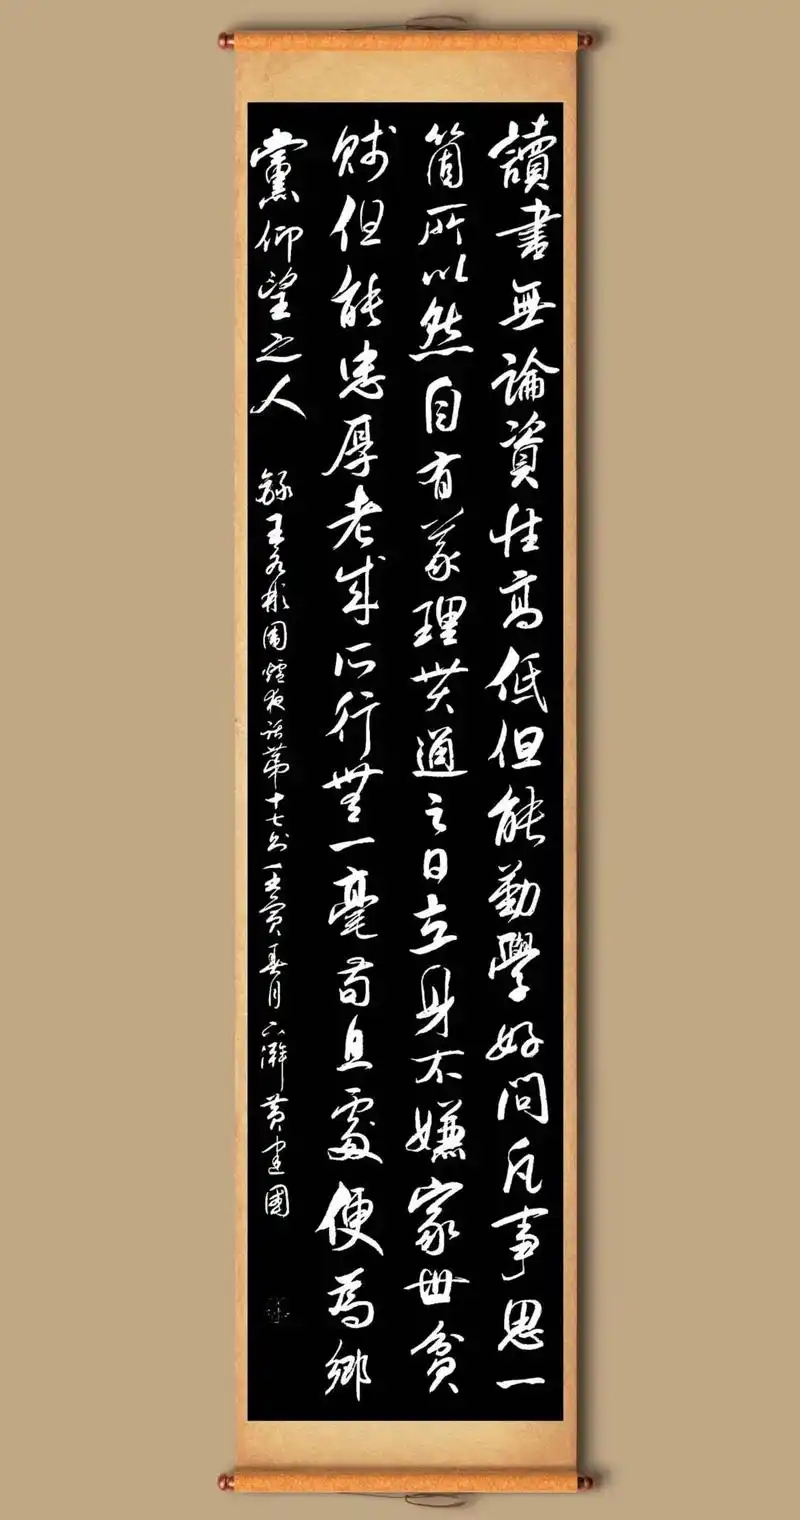 讀書無論資性高低但能勤學好問凡事思一
箇所以然自有義理貫通之日立身不嫌家世貧
賤但能忠厚老成所行無一毫苟且處便為鄉
黨仰望之人 錄王永彬圍爐夜話第十七則 壬寅春月 黃建國